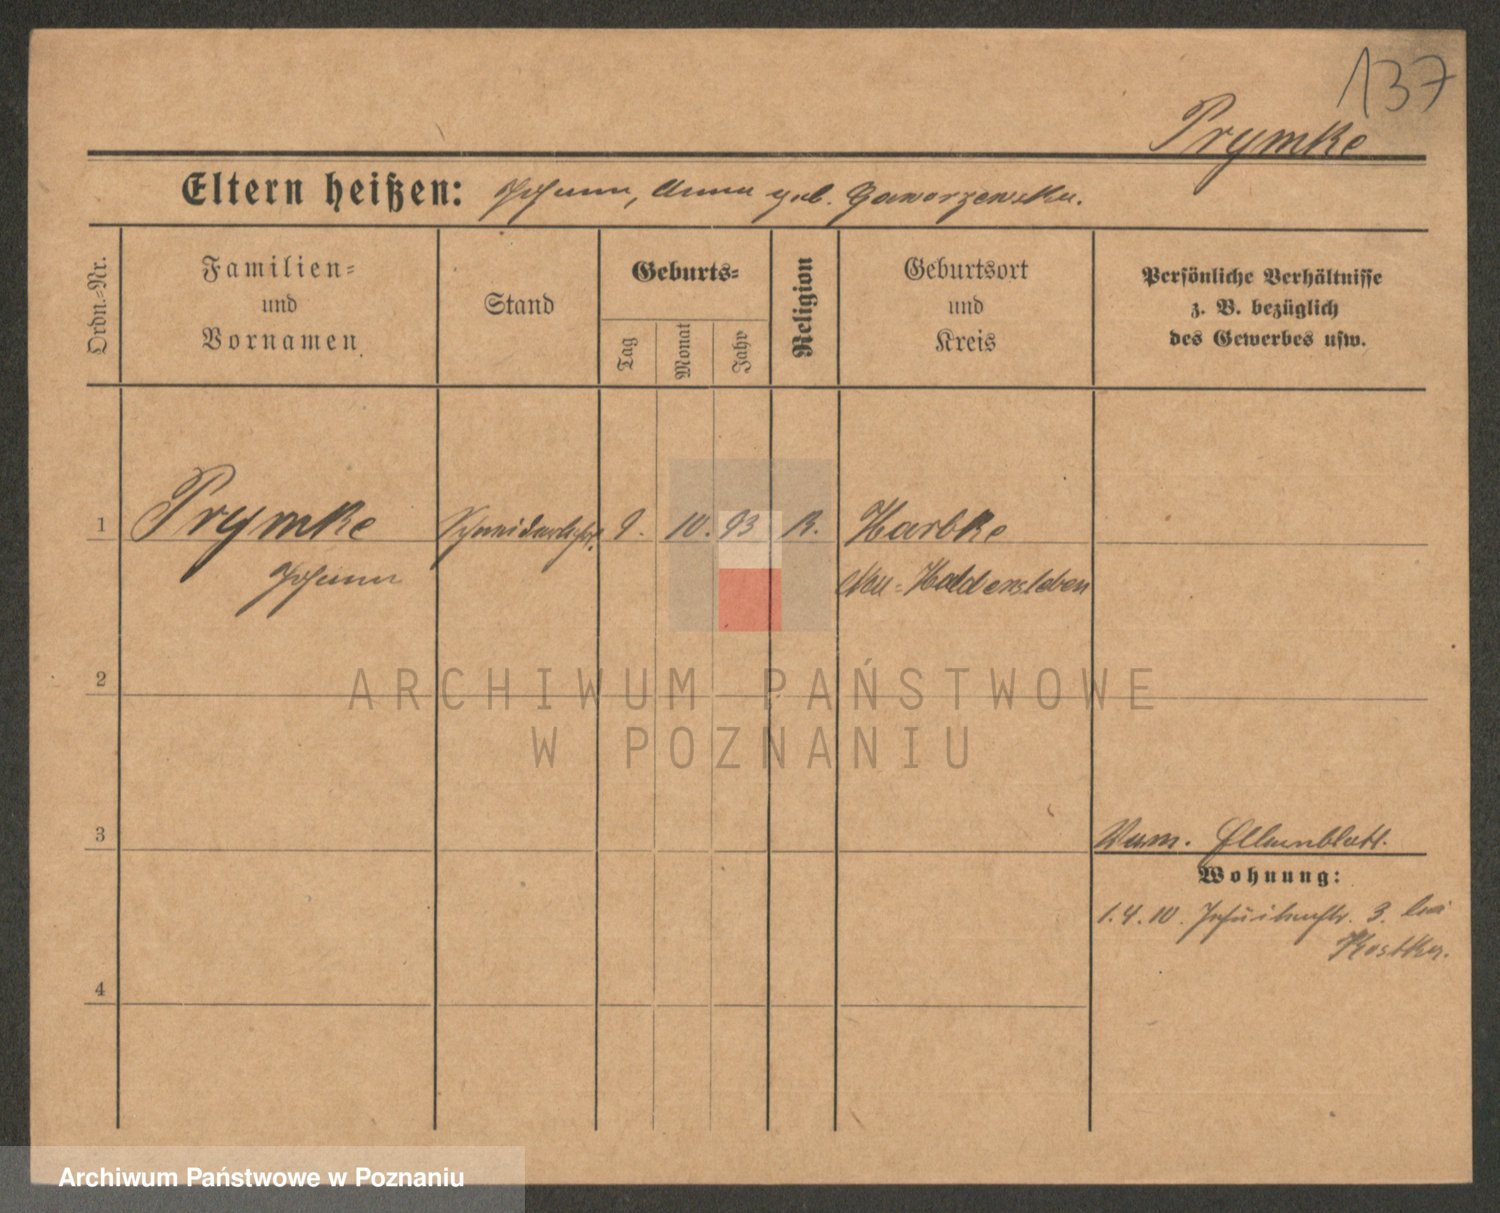 137
Prymke
Eltern heißen: Johann, Anna geb. Gaworzewska.
Ordn.-Nr.
Familien-
und
Vornamen
Stand
Geburts-
Tag
Monat
Jahr
Religion
Geburtsort
und
Kreis
Persönliche Verhältnisse
z. B. bezüglich
des Gewerbes usw.
1 Prymke Schneiderlehrl. 9. 10. 93 K. Harbke
Johann Neu-Haldensleben
2
3
Elternblatt.
Wohnung:
1.4.10. Jesuitenstr. 3. bei
4
ARCHIWUM PAŃSTWOWE
W POZNANIU
Archiwum Państwowe w Poznaniu